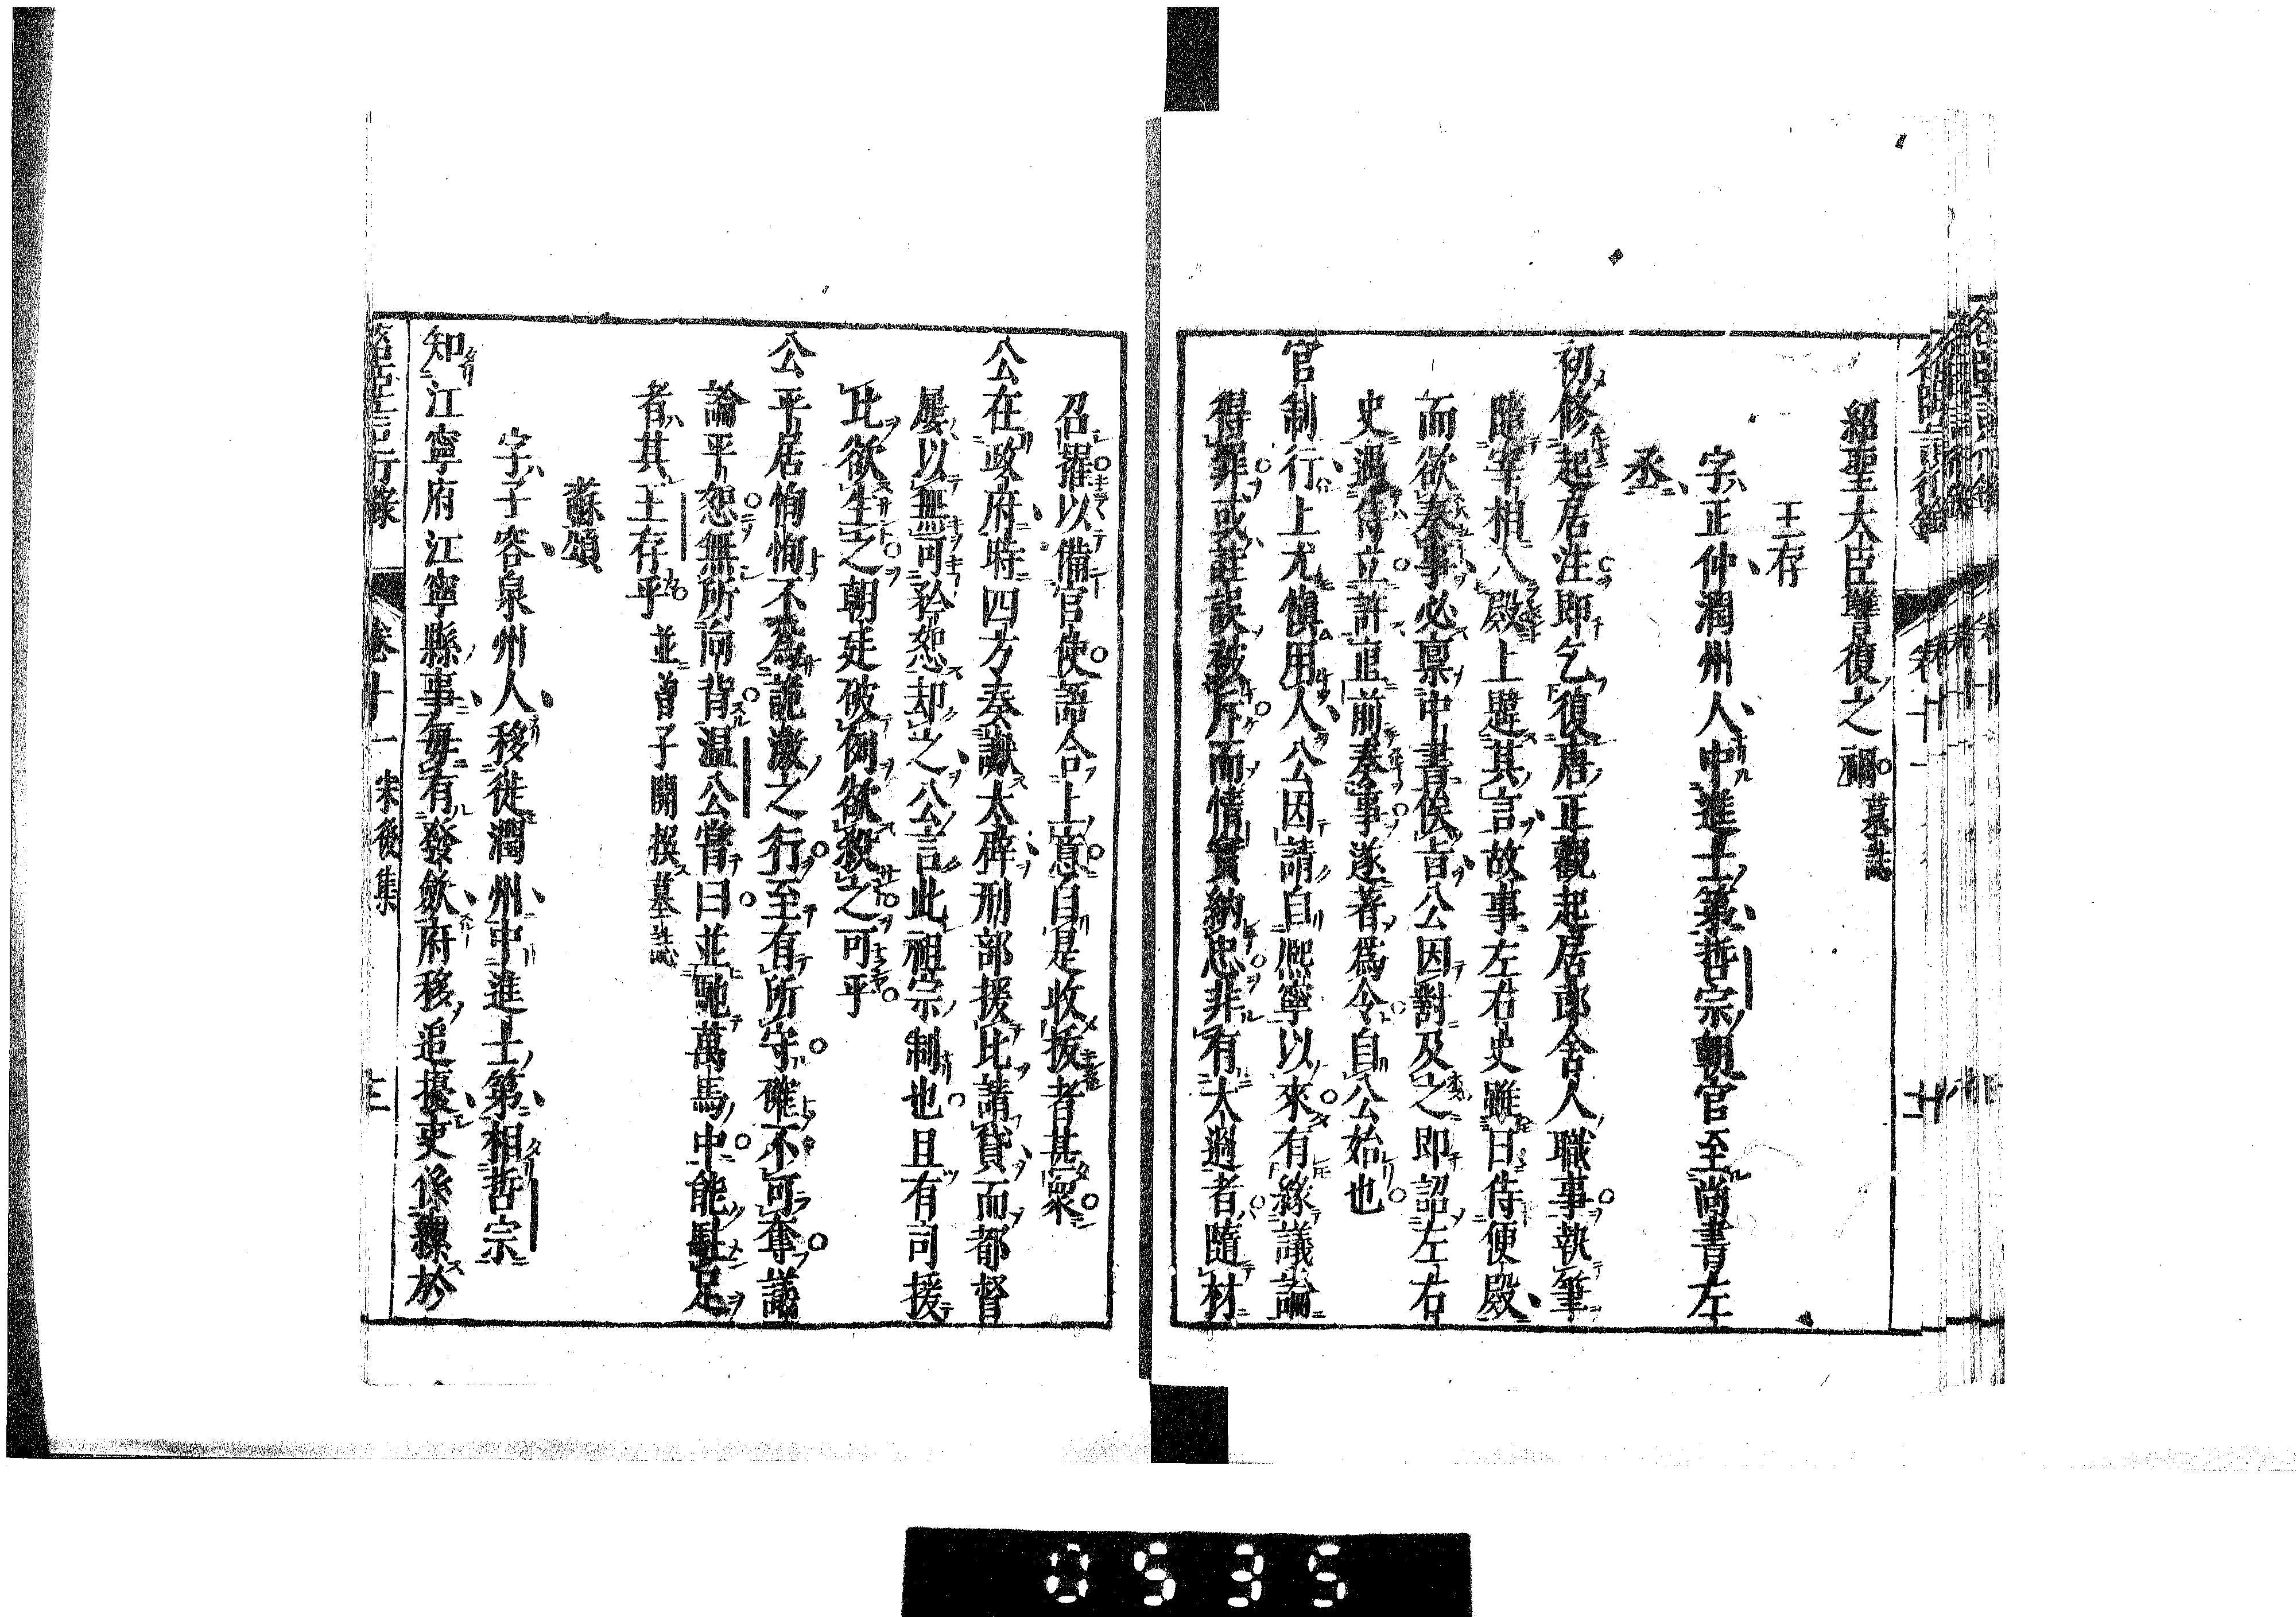 紹聖大臣讐復之禍墓誌
王存
字正仲潤州人中進士第哲宗朝官至尚書左
丞
初修起居注即乞復唐正觀起居郎舍人職事執筆
隨宰相入殿上遞其言故事左右史雖日侍便殿
而欲奏事必禀中書俟旨公因對及之即詔左右
史遇侍立許直前奏事遂著爲令自公始也
官制行上尤慎用人公因請自熈寧以來有緣議論
得罪或註誤被斥而情實納忠非有大過者隨材
召擢以備官使語合上意自是收拔者甚衆
公在政府時四方奏讞大辟刑部援比請貸而都督
屢以無可矜恕却之公言此祖宗制也且有司援
比欲生之朝廷破例欲殺之可乎
公平居恂恂不爲詭激之行至有所守確不可奪議
論平恕無所向背温公嘗曰並馳萬馬中能駐足
者其王存乎並曽子開撰墓誌
蘇頌
字子容泉州人移徙潤州中進士第相哲宗
知江寧府江寧縣事毎有發歛府移追擾吏係纍於
名臣言行錄 卷十一 宋後集
0535